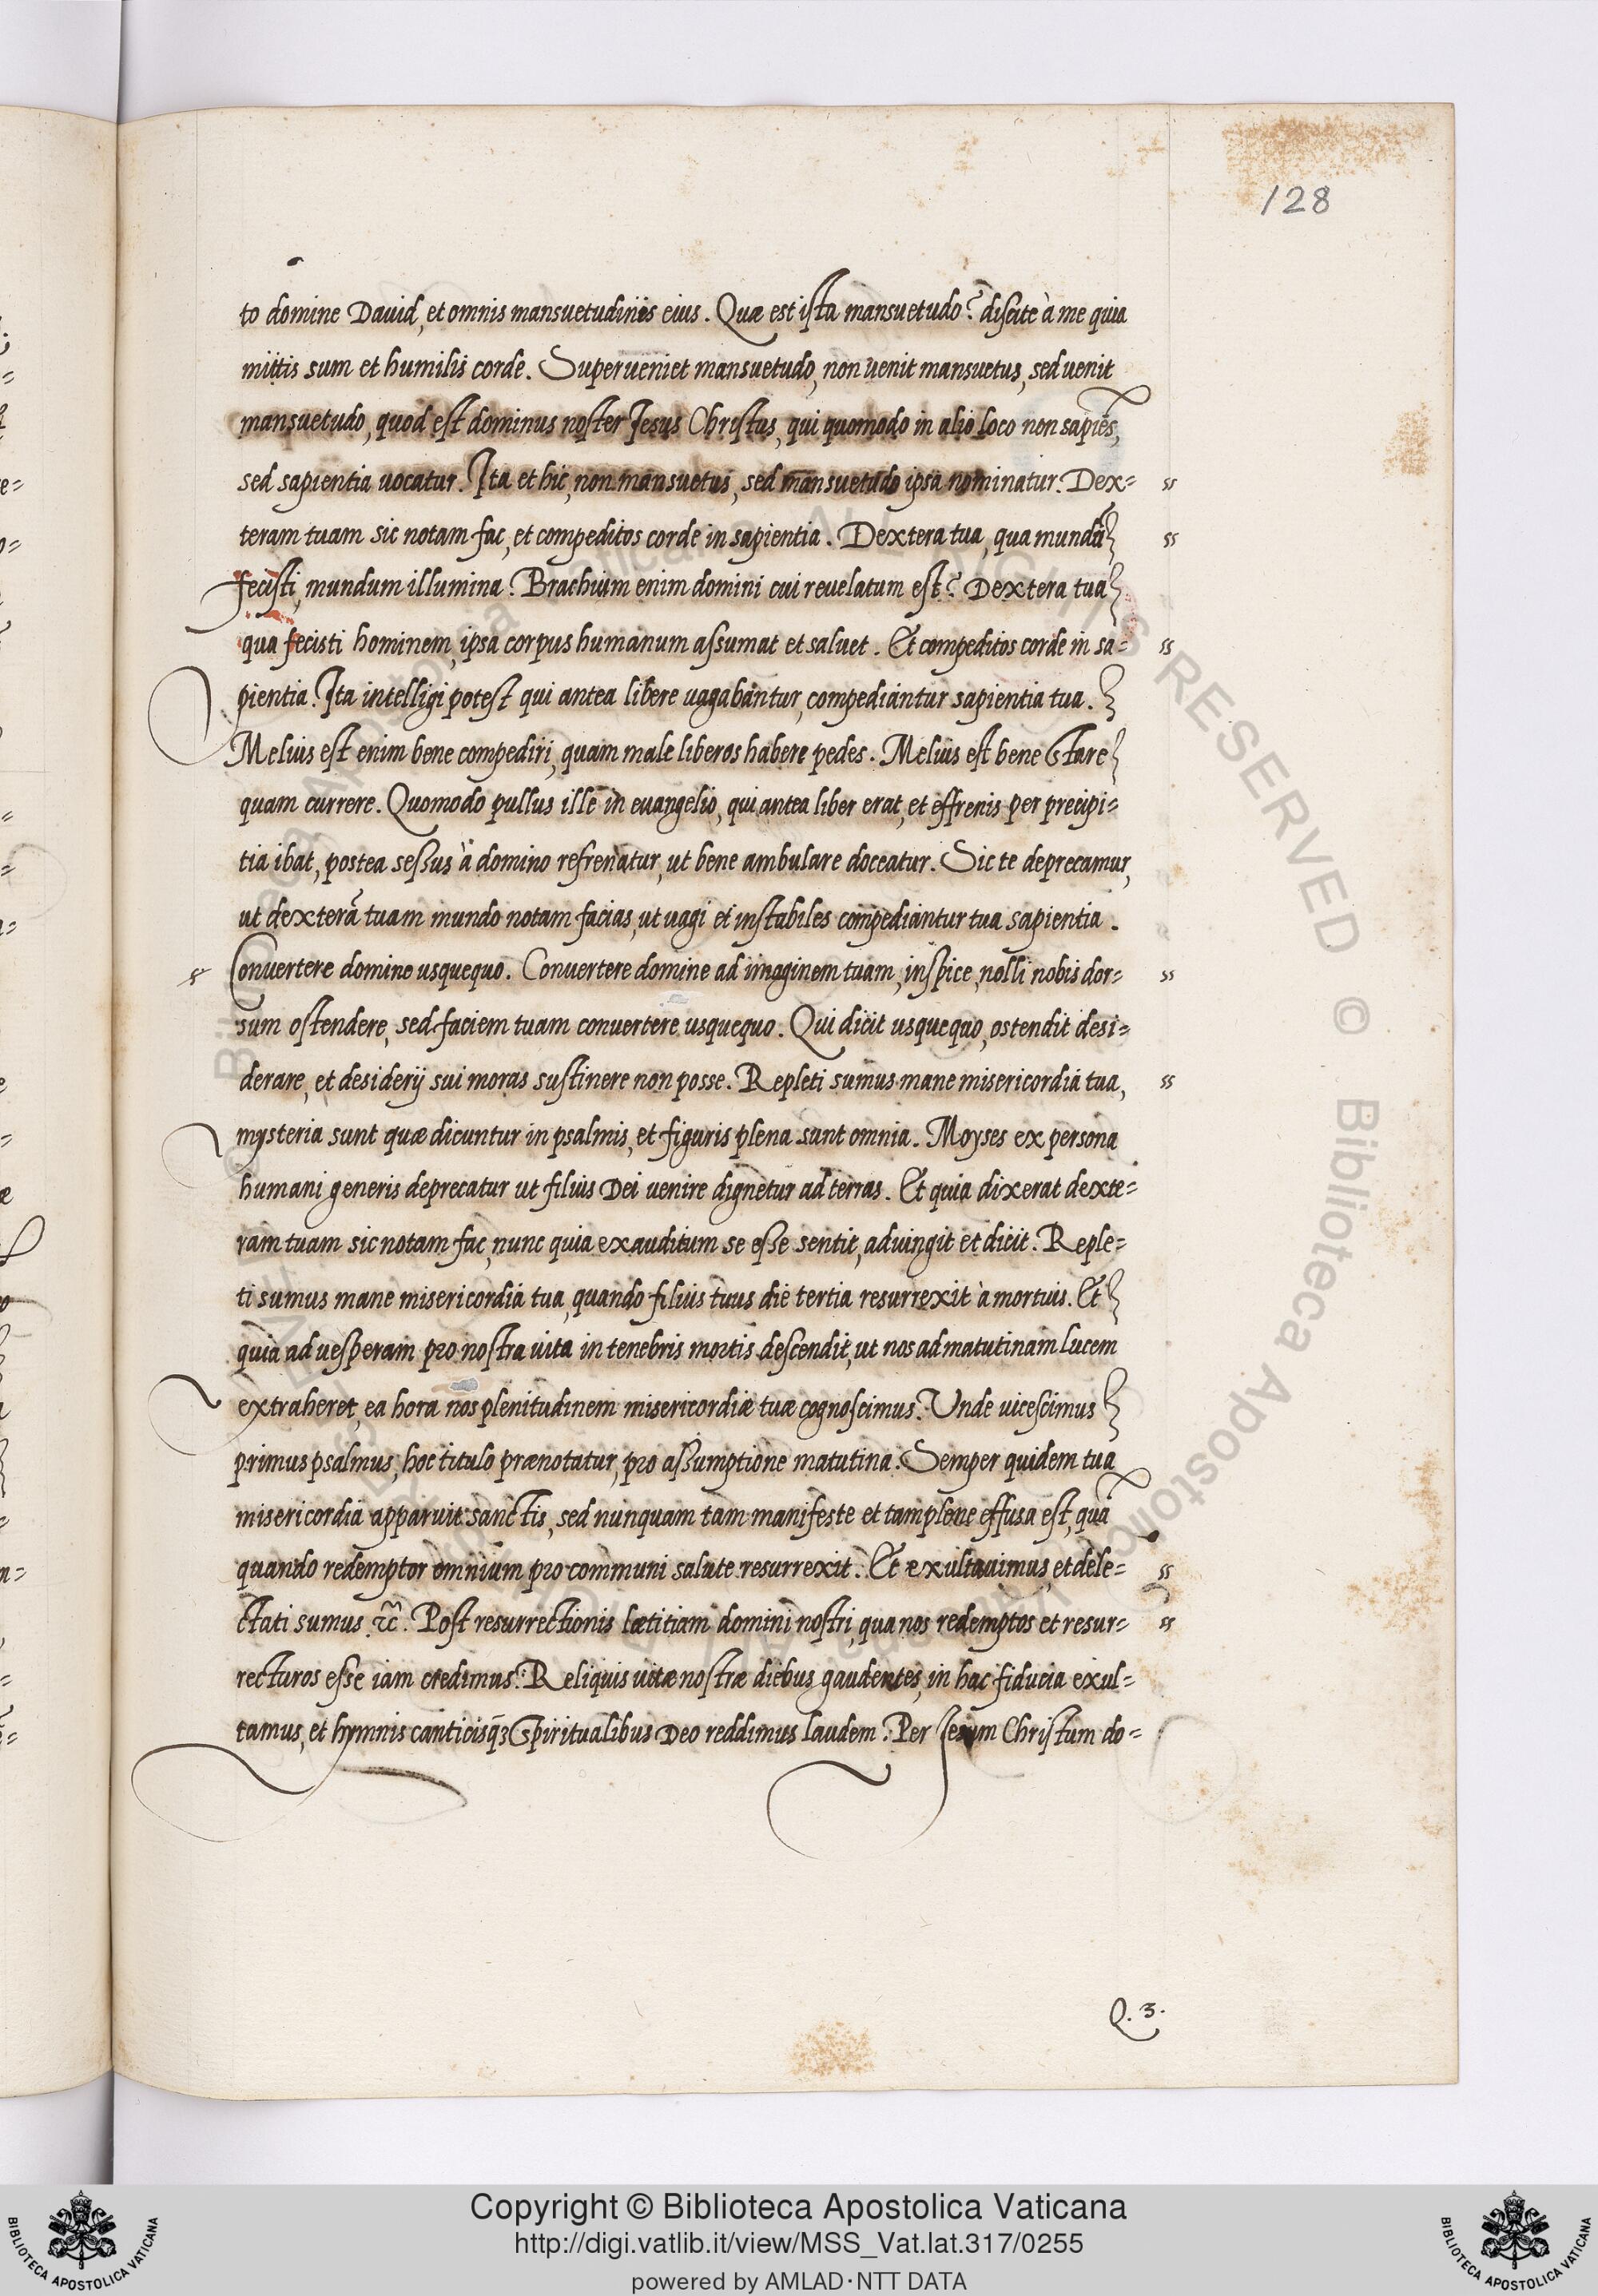 128
to domine Dauid, et omnis mansuetudinis eius. Quæ est ista mansuetudo? discite à me quia
mitis sum et humilis corde. Superueniet mansuetudo, non uenit mansuetus, sed uenit
mansuetudo, quod est dominus noster Jesus Christus, qui quomodo in alio loco non sapiẽs,
sed sapientia uocatur. Ita et hic, non mansuetus, sed mansuetudo ipsa nominatur. Dex=
teram tuam sic notam fac, et compeditos corde in sapientia. Dextera tua, qua mundũ
fecisti, mundum illumina? Brachium enim domini cui reuelatum est? Dextera tua
qua fecisti hominem, ipsa corpus humanum assumat et saluet. Et compeditos corde in sa=
pientia. Ita intelligi potest qui antea libere uagabantur, compediantur sapientia tua.
Melius est enim bene compediri, quam male liberos habere pedes. Melius est bene stare
quam currere. Quomodo pullus ille in euangelio, qui antea liber erat, et effrenis per precipi=
tia ibat, postea sessus à domino refrenatur, ut bene ambulare doceatur. Sic te deprecamur,
ut dexterã tuam mundo notam facias, ut uagi et instabiles compediantur tua sapientia.
Conuertere domine usquequo. Conuertere domine ad imaginem tuam, inspice, nolli nobis dor=
sum ostendere, sed faciem tuam conuertere usquequo. Qui dicit usquequo, ostendit desi=
derare, et desiderij sui moras sustinere non posse. Repleti sumus mane misericordia tua,
mysteria sunt quæ dicuntur in psalmis, et figuris plena sunt omnia. Moyses ex persona
humani generis deprecatur ut filius Dei uenire dignetur ad terras. Et quia dixerat dexte=
ram tuam sic notam fac, nunc quia exauditum se esse sentit, adiungit et dicit. Reple=
ti sumus mane misericordia tua, quando filius tuus die tertia resurrexit à mortuis. Et
quia ad uesperam pro nostra uita in tenebris mortis descendit, ut nos ad matutinam lucem
extraheret, ea hora nos plenitudinem misericordiæ tuæ cognoscimus. Unde uicescimus
primus psalmus, hoc titulo prænotatur, pro assumptione matutina. Semper quidem tua
misericordia apparuit sanctis, sed nunquam tam manifeste et tam plene effusa est, quã
quando redemptor omnium pro communi salute resurrexit. Et exultauimus, et dele=
ctati sumus &c. Post resurrectionis lætitiam domini nostri, qua nos redemptos et resur=
recturos esse iam credimus. Reliquis uitæ nostræ diebus gaudentes, in hac fiducia exul=
tamus, et hymnis canticisq; spiritualibus Deo reddimus laudem. Per Jesum Christum do=
Q. 3.
Copyright © Biblioteca Apostolica Vaticana
http://digi.vatlib.it/view/MSS_Vat.lat.317/0255
powered by AMLAD·NTT DATA